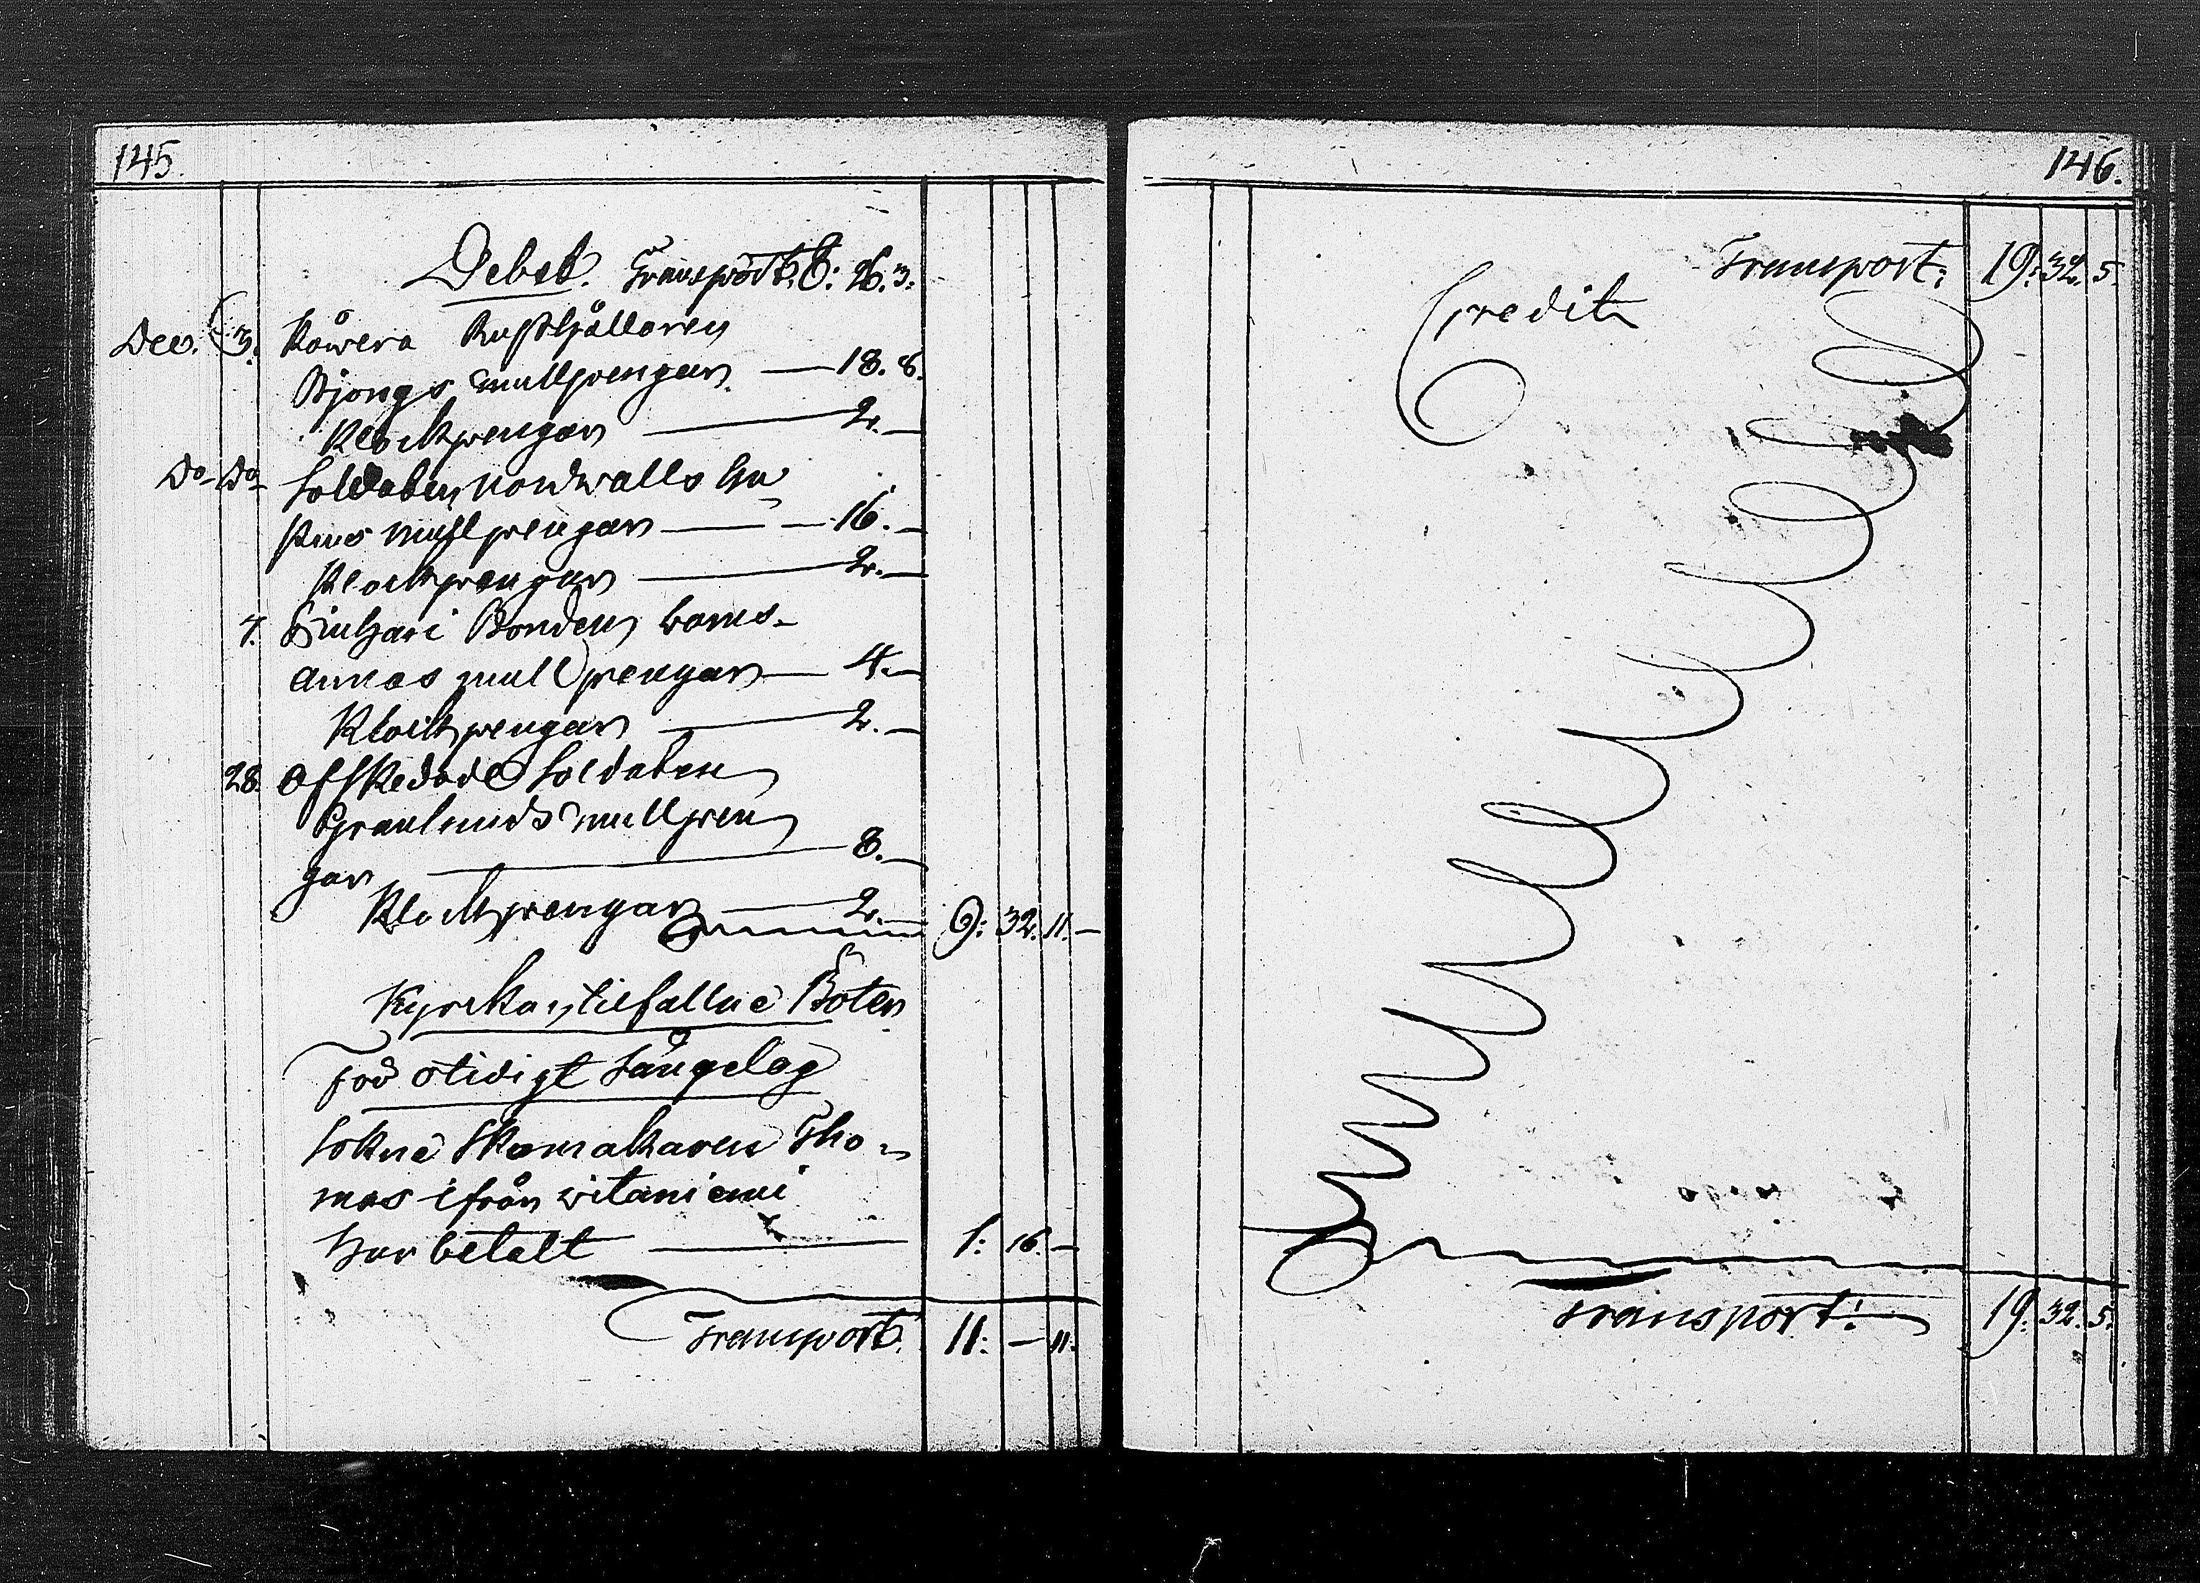 145.
Debet. Transport: 8: 26. 3.
Dec. 3. Råwera Rusthållaren
Bjongs mullpengar — 18. 8.
Klockpengar — 2. —
Do Do Soldaten Nordwalls hu
strus mullpengar — 16. —
Klockpengar — 2. —
7. Bonden barns
annas mullpengar — 4. —
Klockpengar — 2. —
28. Afskedade Soldaten
Granlunds mullpen
gar — 8. —
Klockpengar — 2. — 9: 32. 11. —
Kyrckan tilfallne Böter
för otidigt Sängelag
Sokne Skomakaren Tho-
mas ifrån witaniemi
har betalt — 1: 16. —
Transport. 11: — 11.
146.
Transport: 19: 32. 5.
Credit
Transport: 19: 32. 5.